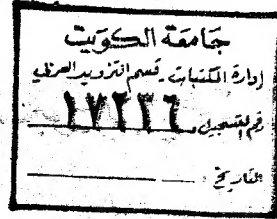 جَامعَة الكويت
إدارة المكتبات - قسم التزويد العربي
رقم التسجيل ١٧٢٣٦
التاريخ